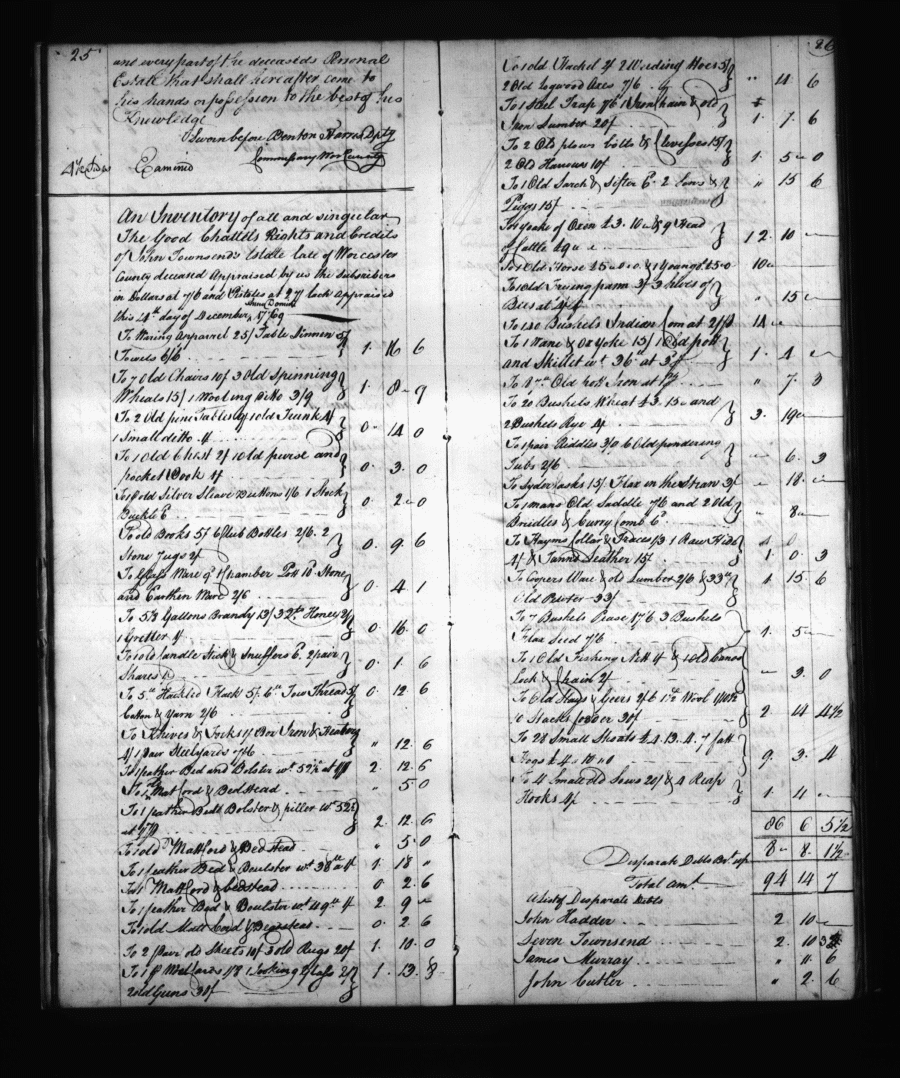 25
and every part of the deceaseds Personal
Estate that shall hereafter come to
his hands or possession to the best of his
Knowledge
Sworn before Benton Harris Dpty
Commissary Wor County
Examined
An Inventory of all and singular
The Good Chattels Rights and Credits
of John Townsend's Estate late of Worcester
County deceased Appraised by us the Subscribers
in Dollars at 7/6 and
this day of December Anno Domini 1769
To Waring Apparel 25/ Table Linnen 5/
Towels 6/6 1. 16 6
To 7 Old Chairs 10/ 3 Old Spinning
Wheals 15/ 1 Wooling ditto 3/9 1. 8 9
To 2 Old pine Tables 1 old Trunk 4/
1 Small ditto 4/ 0. 14 0
To 1 old Chest 2/ 1 old purse and
pocket Book 1/ 0. 3. 0
To 1 p old Silver Sleave Buttons 1/6 1 Stock
Buckle 6 0 2 0
To old Books 5/ 6 Club Bottles 2/6. 2
Stone Jugs 2/ 0. 9 6
To Glass Ware Chamber Pott 10 Stone
and Earthen Ware 2/6 0 4 1
To 5½ Gallons Brandy 13/ Honey 2/
1 Gretter 1/ 0. 16. 0
To 1 old Candle Stick & Snuffers 6. 2 pair
Shares 1/ 0. 1. 6
To 5 Hackled Flack 5/. 6 Tow Thread 5/
Cotton & Yarn 2/6 0. 12. 6
To Knives & Forks 1/ Box Iron & Heaters
4/ 1 pair Steelyards 7/6 " 12. 6
To 1 feather Bed and Bolster wt 52½ at 1/ 2. 12. 6
To 1 Matt Cord & Bed Stead " 5 0
To 1 feather Bedd Bolster & piller wt 52½
at 1/ 2. 12. 6
To 1 old Matt Cord & Bed Stead " 5. 0
To 1 feather Bed & Boulster wt 38 at 1/ 1. 18 "
To 1 Matt Cord & bedstead 0 2. 6
To 1 feather Bed & Boulster wt 49 2. 9
To 1 old Matt Cord & Bedsteas 0 2. 6
To 2 pair old Sheets 10/ 3 old Rugs 20/ 1. 10. 0
To 1 p 1 Looking Glass 2/
2 old Guns 30/ 1. 13. 8
26
To 1 old Hackel 4/ 2 Weeding Hoes 5/
2 Old Logwood Axes 7/6 " 14 6
To 1 Steel Trap 7/6 1 Iron Chain & old
Iron Lumber 20/ 1. 7. 6
To 2 Old plows bolts & Clevises 15/
2 Old Harrows 10/ 1. 5 0
To 1 Old Sarch & Sifter 6. 2 Sows &
Piggs 15/ " 15 6
To 1 Yoake of Oxen £3. 10 & 9 Head
of Cattle £9 12. 10
To 1 Old Horse £5.0.0. & 1 Young do £5.0 10
To 1 Old Frying pann 3/ 3 hives of
Bees at 4/ " 15
To 140 Bushels Indian Corn at 2/ 14
To 1 Wane & Ox Yoke 15/ 1 Old pott
and Skillet wt. 36 at 3 1. 4
To Old pott Iron at " 7. 3
To 20 Bushels Wheat £3. 15 and
2 Bushels Rye 4/ 3. 19
To 1 pair Riddles 3/9 6 Old powdering
Tubs 2/6 " 6. 3
To Syder Casks 15/ Flax in the Straw 3/ 18.
To 1 mans Old Saddle 7/6 and 2 Old
Bridles & Curry Comb 6 8
To Hayms Collar & Traces 1/3 1 Raw Hide
4/ & Tann'd Leather 15/ 1. 0. 3
To Coopers Ware & old Lumber 2/6 & 33
Old Pewter 33/ 1 15. 6
To 7 Bushels Pease 17/6 3 Bushels
Flax Seed 7/6 1. 5
To 1 Old Fishing Nett 4 & 1 old Canoe
Lock & Chain 2/ 3. 0
To Old Stays & Geers 2/6 Wool
10 Stacks fodder 30/ 2 14 4½
To 28 Small Shoats £4.13.4. 7 fatt
Hogs £4.10.0 9. 3. 4
To 4 Small old Sows 20/ & 4 Reap
Hooks 4/ 1. 4
86 6 5½
Desparate Debts Bt. up 8 8. 1½
Total amt. 94 14 7
A List of Desparate Debts
John Hadder 2 10
Seven Townsend 2. 10
James Murray " 11. 6
John Cutler " 2. 6